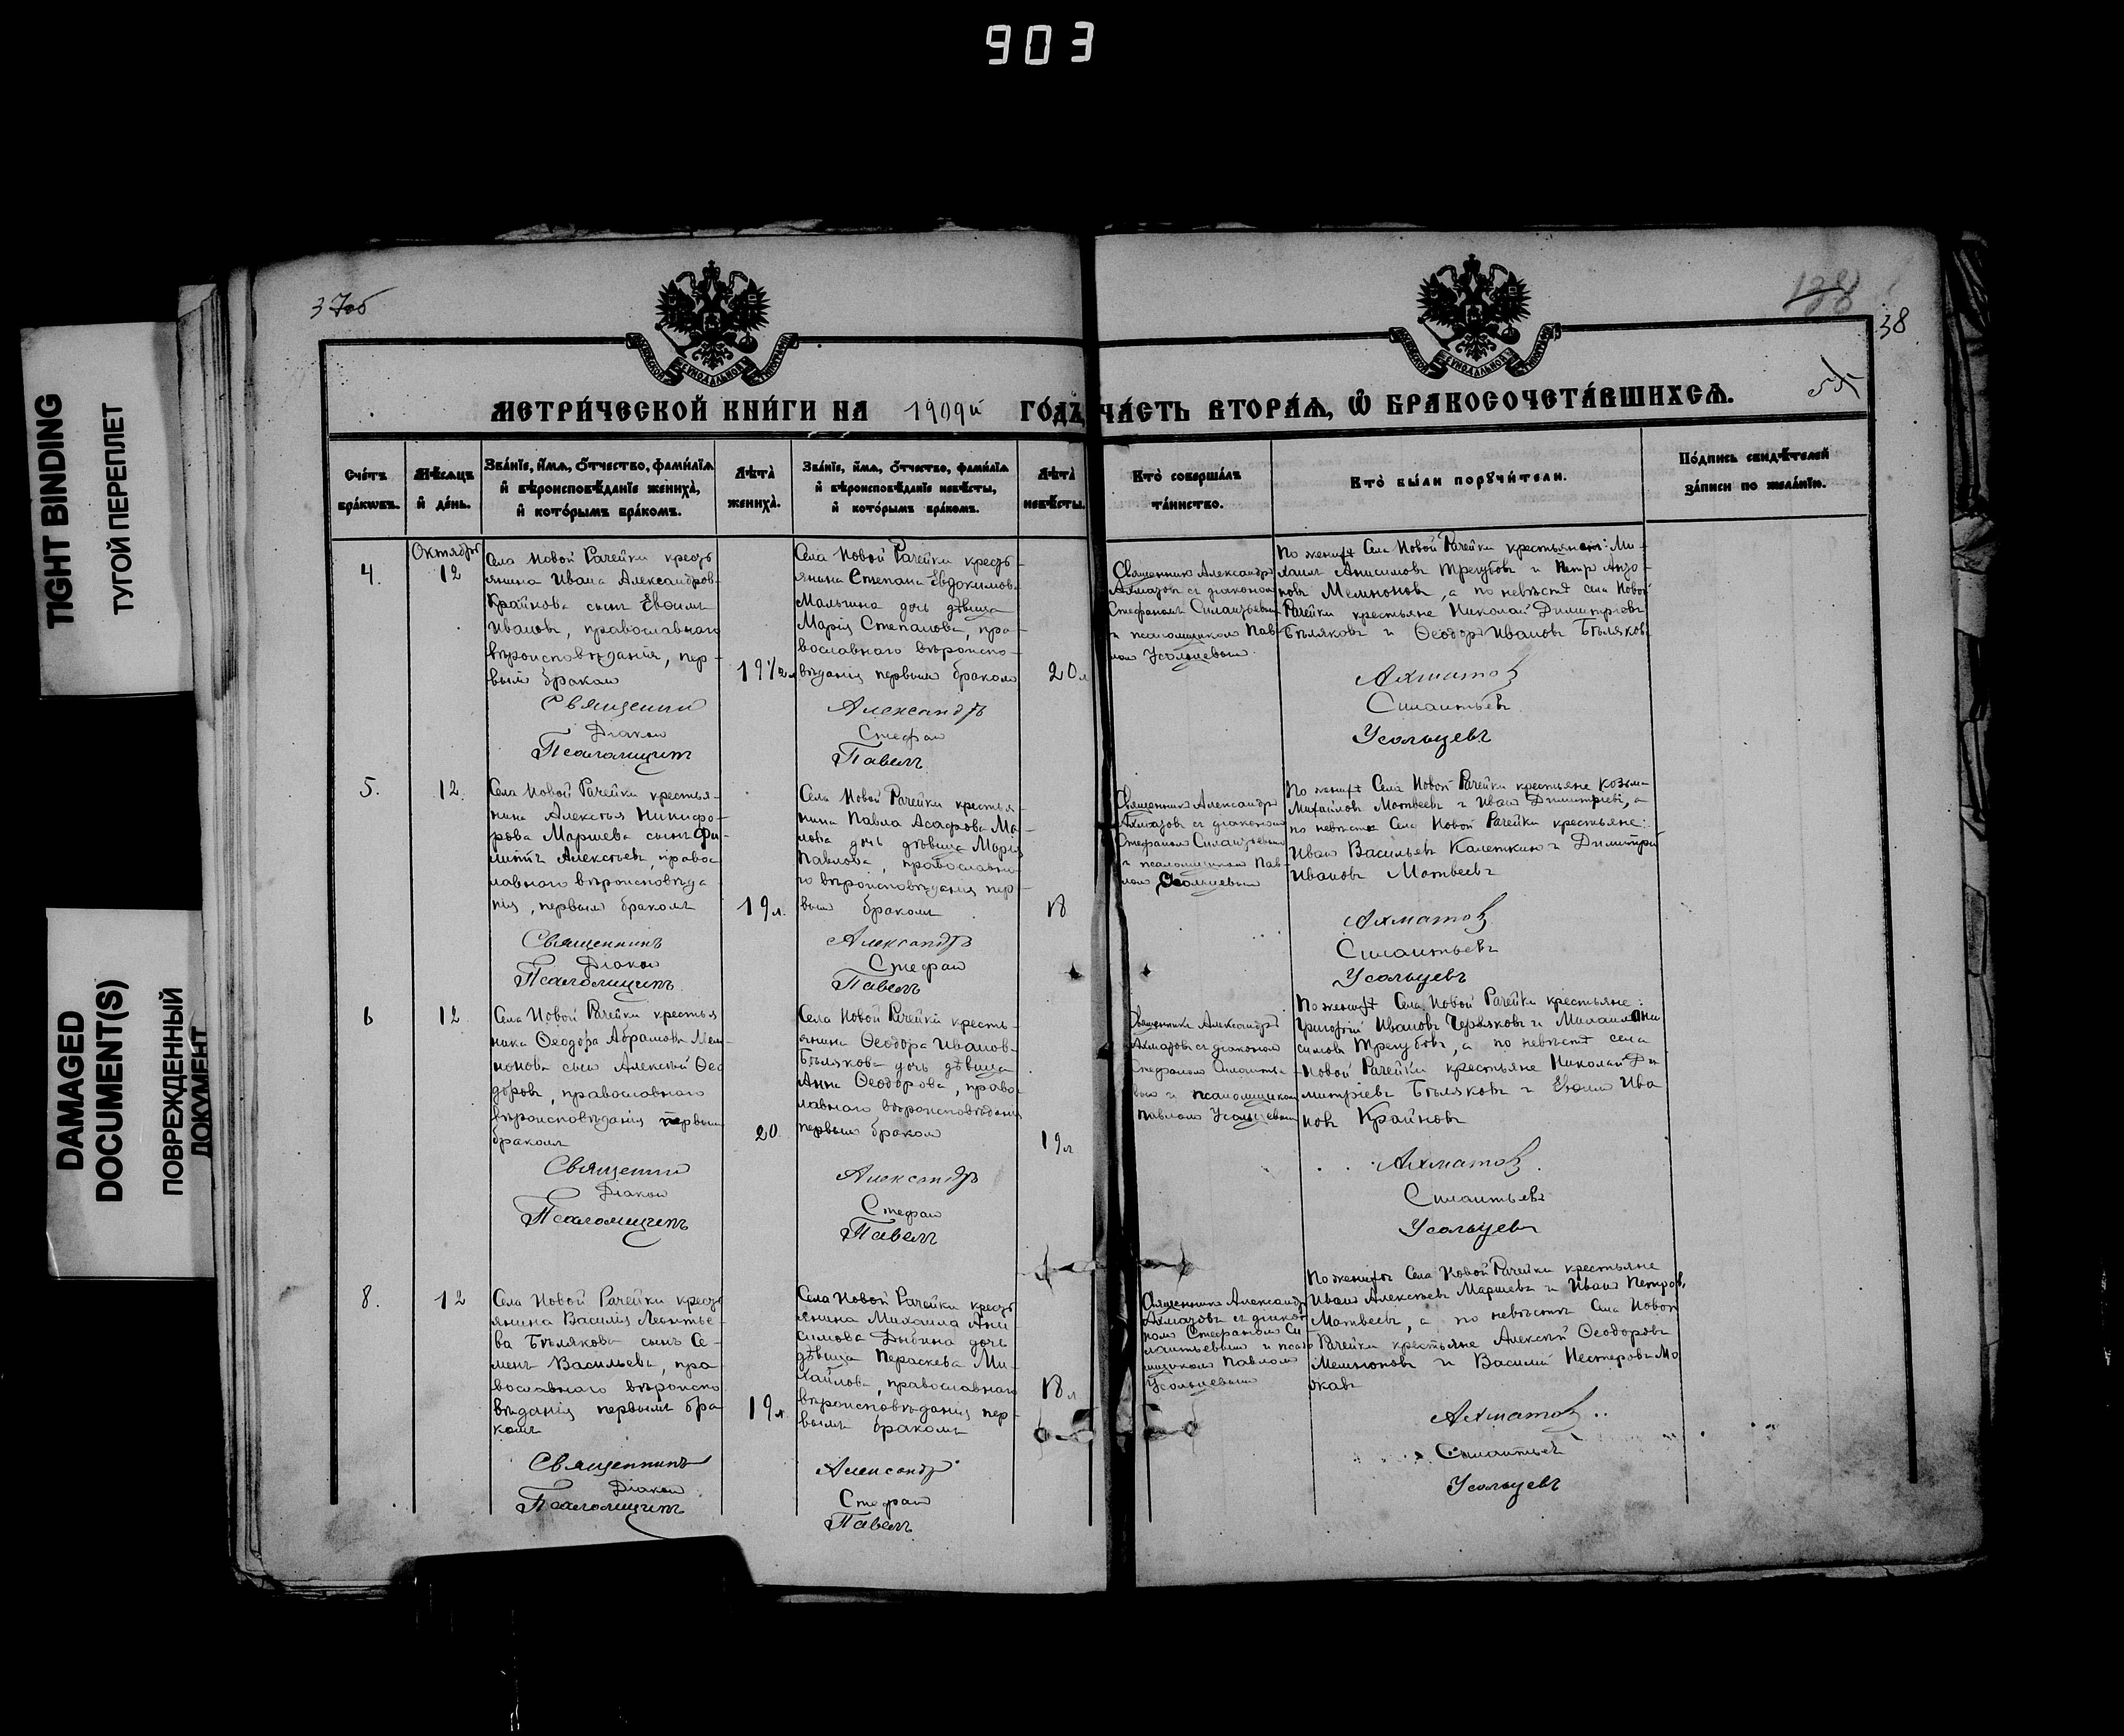 903
TIGHT BINDING
ТУГОЙ ПЕРЕПЛЕТ
DAMAGED
DOCUMENT(S)
ПОВРЕЖДЕННЫЙ
ДОКУМЕНТ
37об
138
38
МЕТРИ́ЧЕСКОЙ КНИ́ГИ НА 1909й ГО́ДЪ, ЧА́СТЬ ВТОРА́Ѧ, Ѡ҆ БРАКОСОЧЕТА́ВШИХСѦ.
Сче́тъ бра́кѡвъ.
Мѣ́сѧцъ и҆ де́нь.
Зва́нїе, и҆́мѧ, ѻ҆́тчество, фами́лїѧ
и҆ вѣроисповѣ́данїе жениха̀,
и҆ кото́рымъ бра́комъ.
Лѣта̀ жениха̀.
Зва́нїе, и҆́мѧ, ѻ҆́тчество, фами́лїѧ
и҆ вѣроисповѣ́данїе невѣ́сты,
и҆ кото́рымъ бра́комъ.
Лѣта̀ невѣ́сты.
Кто̀ соверша́лъ
та́инство.
Кто̀ бы́ли порꙋчи́тели.
По́дпись свидѣ́телей
за́писи по жела́нїю.
4.
Октябрь
12
Села Новой Рачейки кресть
янина Ивана Александров
Крайнова сынъ Евѳимъ
Ивановъ, православнаго
вѣроисповѣданія, пер-
вымъ бракомъ
19½ л
Села Новой Рачейки кресть-
янина Степана Евдокимова
Малыгина дочь дѣвица
Марія Степанова, пра-
вославнаго вѣроиспо-
вѣданія первымъ бракомъ
20 л
Священникъ Александръ
Ахматовъ съ діакономъ
Стефаномъ Силантьевымъ
и псаломщикомъ Пав-
ломъ Усольцевымъ
По женихѣ Села Новой Рачейки крестьяне: Ми-
хаилъ Анисимовъ Трегубовъ и Петр
Мемноновъ, а по невѣстѣ села Новой
Рачейки крестьяне Николай Димитріевъ
Бѣляковъ и Ѳеодоръ Ивановъ Бѣляковъ
Священникъ Александръ Ахматовъ
Діаконъ Стефанъ Силантьевъ
Псаломщикъ Павелъ Усольцевъ
5.
12.
Села Новой Рачейки крестья-
нина Алексѣя Никифо-
рова Маршева сынъ Фи-
липпъ Алексѣевъ, правос
лавнаго вѣроисповѣда
нія, первымъ бракомъ
19 л.
Села Новой Рачейки крестья
нина Павла Асафова Ма-
дочь дѣвица Марія
Павлова, православна-
го вѣроисповѣданія пер-
вымъ бракомъ
18
Священникъ Александръ
Ахматовъ съ діакономъ
Стефаномъ Силантьевымъ
и псаломщикомъ Пав-
ломъ Усольцевымъ
По женихѣ Села Новой Рачейки крестьяне Козьма
Михайловъ Матвеевъ и Иванъ Димитріевъ, а
по невѣстѣ Села Новой Рачейки крестьяне:
Иванъ Васильевъ Калеткинъ и Димитрій
Ивановъ Матвеевъ
Священникъ Александръ Ахматовъ
Діаконъ Стефанъ Силантьевъ
Псаломщикъ Павелъ Усольцевъ
6
12.
Села Новой Рачейки крестья
нина Ѳеодора Абрамова Мем-
нонова сынъ Алексѣй Ѳео
доровъ, православнаго
вѣроисповѣданія первымъ
бракомъ
20
Села Новой Рачейки кресть-
янина Ѳеодора Иванов-
Бѣлякова дочь дѣвица
Анна Ѳеодорова, правос
лавнаго вѣроисповѣданія
первымъ бракомъ
19 л
Священникъ Александръ
Ахматовъ съ діакономъ
Стефаномъ Силантье-
вымъ и псаломщикомъ
Павломъ Усольцевымъ
По женихѣ Села Новой Рачейки крестьяне:
Григорій Ивановъ Черняковъ и Михаилъ Ани
симовъ Трегубовъ, а по невѣстѣ села
Новой Рачейки крестьяне Николай Ди
митріевъ Бѣляковъ и Евѳимъ Ива
новъ Крайновъ
Священникъ Александръ Ахматовъ
Діаконъ Стефанъ Силантьевъ
Псаломщикъ Павелъ Усольцевъ
8.
12
Села Новой Рачейки кресть
янина Василія Леонтье-
ва Бѣлякова сынъ Се-
менъ Васильевъ, пра
вославнаго вѣроиспо
вѣданія первымъ бра
комъ
19 л
Села Новой Рачейки кресть
янина Михаила Ани-
симова Дыбина дочь
дѣвица Параскева Ми-
хайлова, православнаго
вѣроисповѣданія пер-
вымъ бракомъ
18 л
Священникъ Александръ
Ахматовъ съ діако-
номъ Стефаномъ Си
лантьевымъ и псало
мщикомъ Павломъ
Усольцевымъ
По женихѣ Села Новой Рачейки крестьяне
Иванъ Алексѣевъ Маршевъ и Иванъ Петров.
Матвеевъ, а по невѣстѣ Села Новой
Рачейки крестьяне Алексѣй Ѳеодоровъ
Мемноновъ и Василій Нестеровъ
Священникъ Александръ Ахматовъ
Діаконъ Стефанъ Силантьевъ
Псаломщикъ Павелъ Усольцевъ